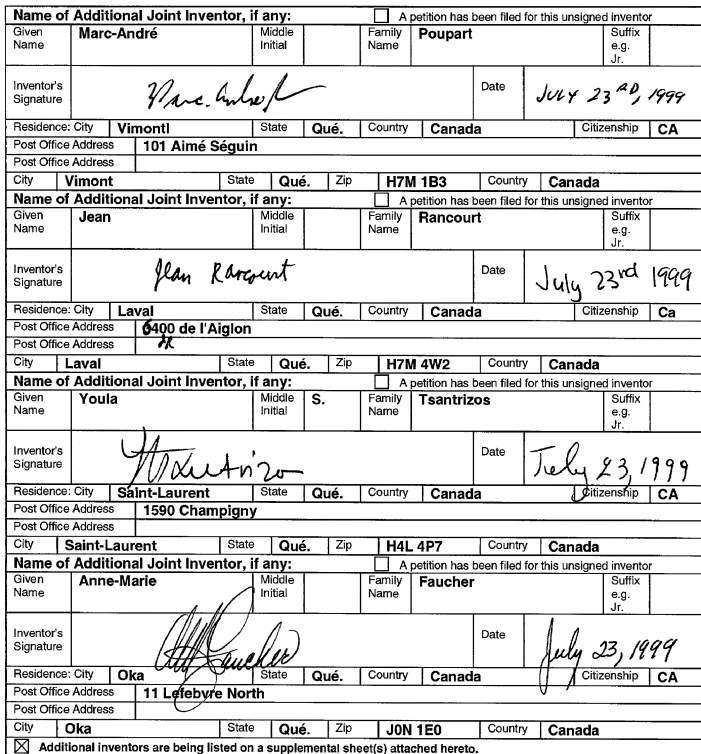 Name of Additional Joint Inventor, if any: A petition has been filed for this unsigned inventor
Given Name Marc-André Middle Initial Family Name Poupart Suffix e.g. Jr.
Inventor's Signature Date JULY 23RD, 1999
Residence: City Vimontl State Qué. Country Canada Citizenship CA
Post Office Address 101 Aimé Séguin
Post Office Address
City Vimont State Qué. Zip H7M 1B3 Country Canada
Name of Additional Joint Inventor, if any: A petition has been filed for this unsigned inventor
Given Name Jean Middle Initial Family Name Rancourt Suffix e.g. Jr.
Inventor's Signature Jean Rancourt Date July 23rd 1999
Residence: City Laval State Qué. Country Canada Citizenship Ca
Post Office Address 6400 de l'Aiglon
Post Office Address
City Laval State Qué. Zip H7M 4W2 Country Canada
Name of Additional Joint Inventor, if any: A petition has been filed for this unsigned inventor
Given Name Youla Middle Initial S. Family Name Tsantrizos Suffix e.g. Jr.
Inventor's Signature Date July 23, 1999
Residence: City Saint-Laurent State Qué. Country Canada Citizenship CA
Post Office Address 1590 Champigny
Post Office Address
City Saint-Laurent State Qué. Zip H4L 4P7 Country Canada
Name of Additional Joint Inventor, if any: A petition has been filed for this unsigned inventor
Given Name Anne-Marie Middle Initial Family Name Faucher Suffix e.g. Jr.
Inventor's Signature Faucher Date July 23, 1999
Residence: City Oka State Qué. Country Canada Citizenship CA
Post Office Address 11 Lefebvre North
Post Office Address
City Oka State Qué. Zip J0N 1E0 Country Canada
Additional inventors are being listed on a supplemental sheet(s) attached hereto.